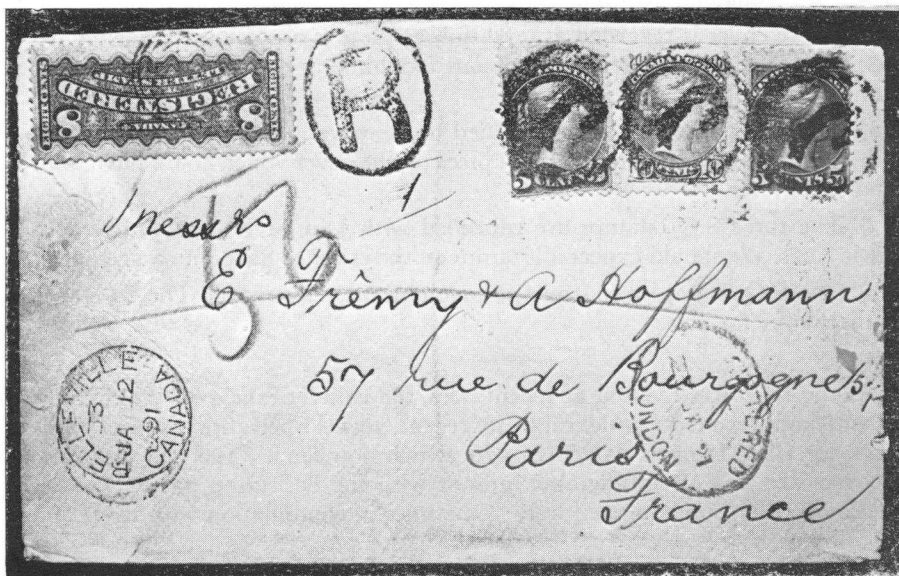 8 REGISTERED 8
CANADA
R
CANADA POSTAGE
5 CENTS 5
CENTS
5 CENTS 5
1
Messrs
E Frêmy & A Hoffmann
57 rue de Bourgogne
Paris
France
BELLEVILLE
JA 12
91
CANADA
REGISTERED
LONDON